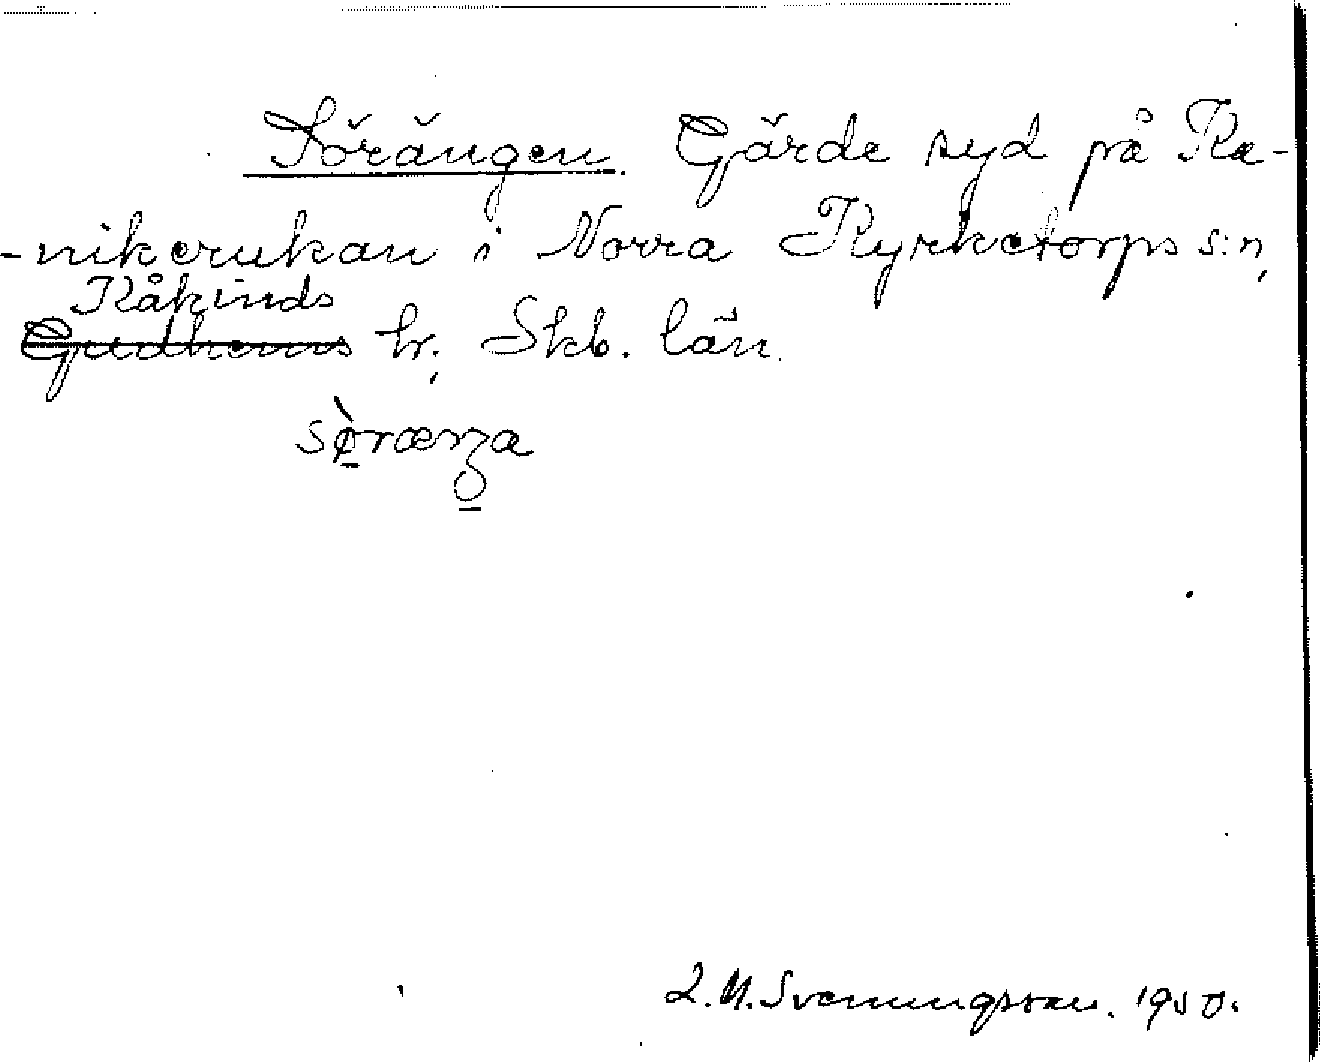 Sörängen. Gärde syd på Ka-
-nikerukan i Norra Kyrketorps s:n,
Kåkinds
Gudhems hr, Skb. län.
L.M. Svenungsson. 1950.